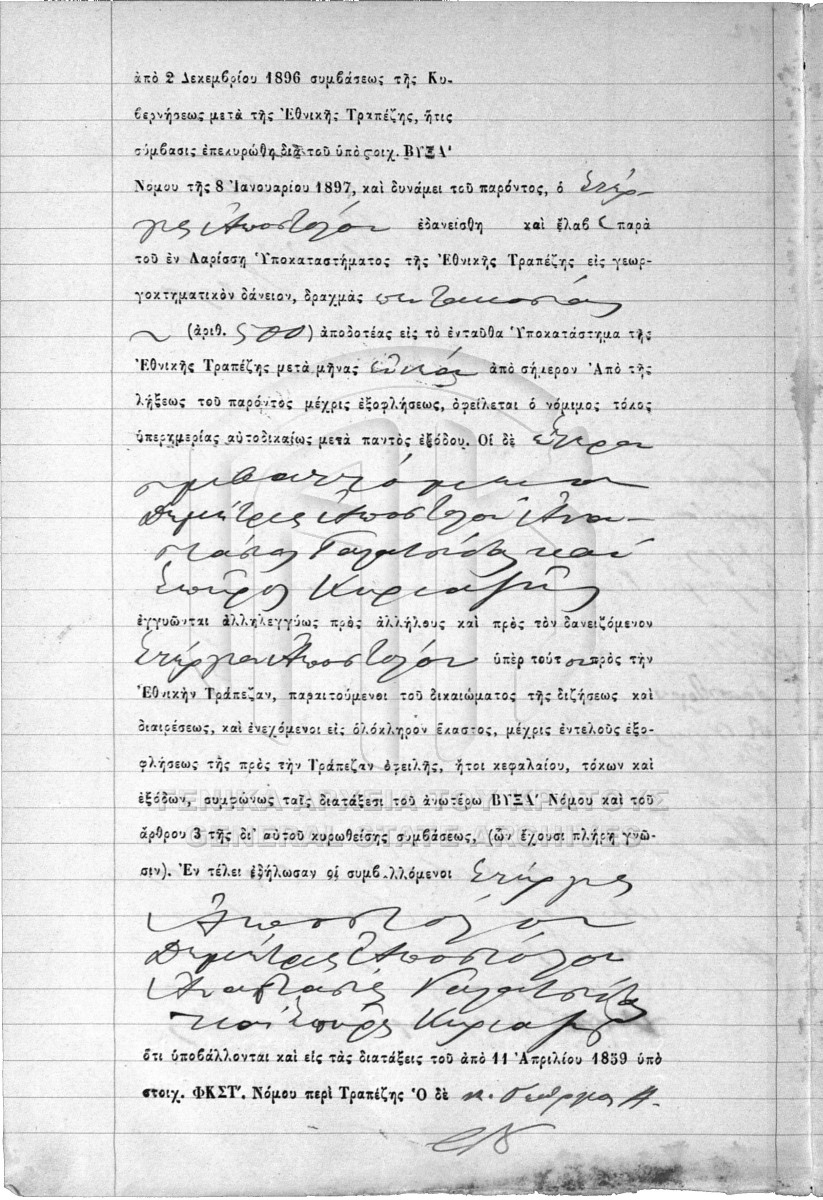 ἀπὸ 2 Δεκεμβρίου 1896 συμβάσεως τῆς Κυ-
βερνήσεως μετὰ τῆς Ἐθνικῆς Τραπέζης, ἥτις
σύμβασις ἐπεκυρώθη διὰ τοῦ ὑπὸ στοιχ. ΒΥΞΑ'
Νόμου τῆς 8 Ἰανουαρίου 1897, καὶ δυνάμει τοῦ παρόντος, ὁ Στέρ-
γιος Ἀποστόλου ἐδανείσθη καὶ ἔλαβε παρὰ
τοῦ ἐν Λαρίσση Ὑποκαταστήματος τῆς Ἐθνικῆς Τραπέζης εἰς γεωρ-
γοκτηματικὸν δάνειον, δραχμὰς πεντακοσίας
(ἀριθ. 500) ἀποδοτέας εἰς τὸ ἐνταῦθα Ὑποκατάστημα τῆς
Ἐθνικῆς Τραπέζης μετὰ μῆνας ἐννέα ἀπὸ σήμερον Ἀπὸ τῆς
λήξεως τοῦ παρόντος μέχρις ἐξοφλήσεως, ὀφείλεται ὁ νόμιμος τόκος
ὑπερημερίας αὐτοδικαίως μετὰ παντὸς ἐξόδου. Οἱ δὲ ἕτεροι
συμβαλλόμενοι
Δημήτριος Ἀποστόλου Ἀνα-
στάσιος Γαλατσίδας καὶ
Σπῦρος Κυριαζῆς
ἐγγυῶνται ἀλληλεγγύως πρὸς ἀλλήλους καὶ πρὸς τὸν δανειζόμενον
Στέργιον Ἀποστόλου ὑπὲρ τούτου πρὸς τὴν
Ἐθνικὴν Τράπεζαν, παραιτούμενοι τοῦ δικαιώματος τῆς διζήσεως καὶ
διαιρέσεως, καὶ ἐνεχόμενοι εἰς ὁλόκληρον ἕκαστος, μέχρις ἐντελοῦς ἐξο-
φλήσεως τῆς πρὸς τὴν Τράπεζαν ὀφειλῆς, ἤτοι κεφαλαίου, τόκων καὶ
ἐξόδων, συμφώνως ταῖς διατάξεσι τοῦ ἀνωτέρω ΒΥΞΑ' Νόμου καὶ τοῦ
ΓΕΝΙΚΑ ΑΡΧΕΙΑ ΤΟΥ ΚΡΑΤΟΥΣ
ἄρθρου 3 τῆς δι' αὐτοῦ κυρωθείσης συμβάσεως, (ὧν ἔχουσι πλήρη γνῶ-
GENERAL STATE ARCHIVES
σιν). Ἐν τέλει ἐδήλωσαν οἱ συμβαλλόμενοι Στέργιος
Ἀποστόλου
Δημήτριος Ἀποστόλου
Ἀναστάσιος Γαλατσίδας
καὶ Σπῦρος Κυριαζῆς
ὅτι ὑποβάλλονται καὶ εἰς τὰς διατάξεις τοῦ ἀπὸ 11 Ἀπριλίου 1859 ὑπὸ
στοιχ. ΦΚΣΤ'. Νόμου περὶ Τραπέζης Ὁ δὲ κ. Γεώργιος Α.